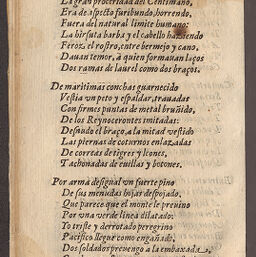 La gran proceridad del Centimano,
Era de aspecto furibundo, horrendo,
Fuera del natural limite humano:
La hirsuta barba y el cabello haziendo
Feroz el rostro, entre bermejo y cano,
Dauan temor, à quien formauan laços
Dos ramas de laurel como dos braços.
De maritimas conchas guarnecido
Vestia vn peto y espaldar, trauadas
Con firmes puntas de metal bruñido,
De los Reynocerontes imitadas:
Desnudo el braço, a la mitad vestido
Las piernas de coturnos enlazadas
De corretas de tigres y leones,
Tachonadas de euillas y botones.
Por arma desigual vn fuerte pino
De sus menudas hojas despojado,
Que parece que al monte le preuino
Por vna verde linea dilatado:
Yo triste y derrotado peregrino
Pacifico llegue como engañado,
Dos soldados preuengo a la embaxada,